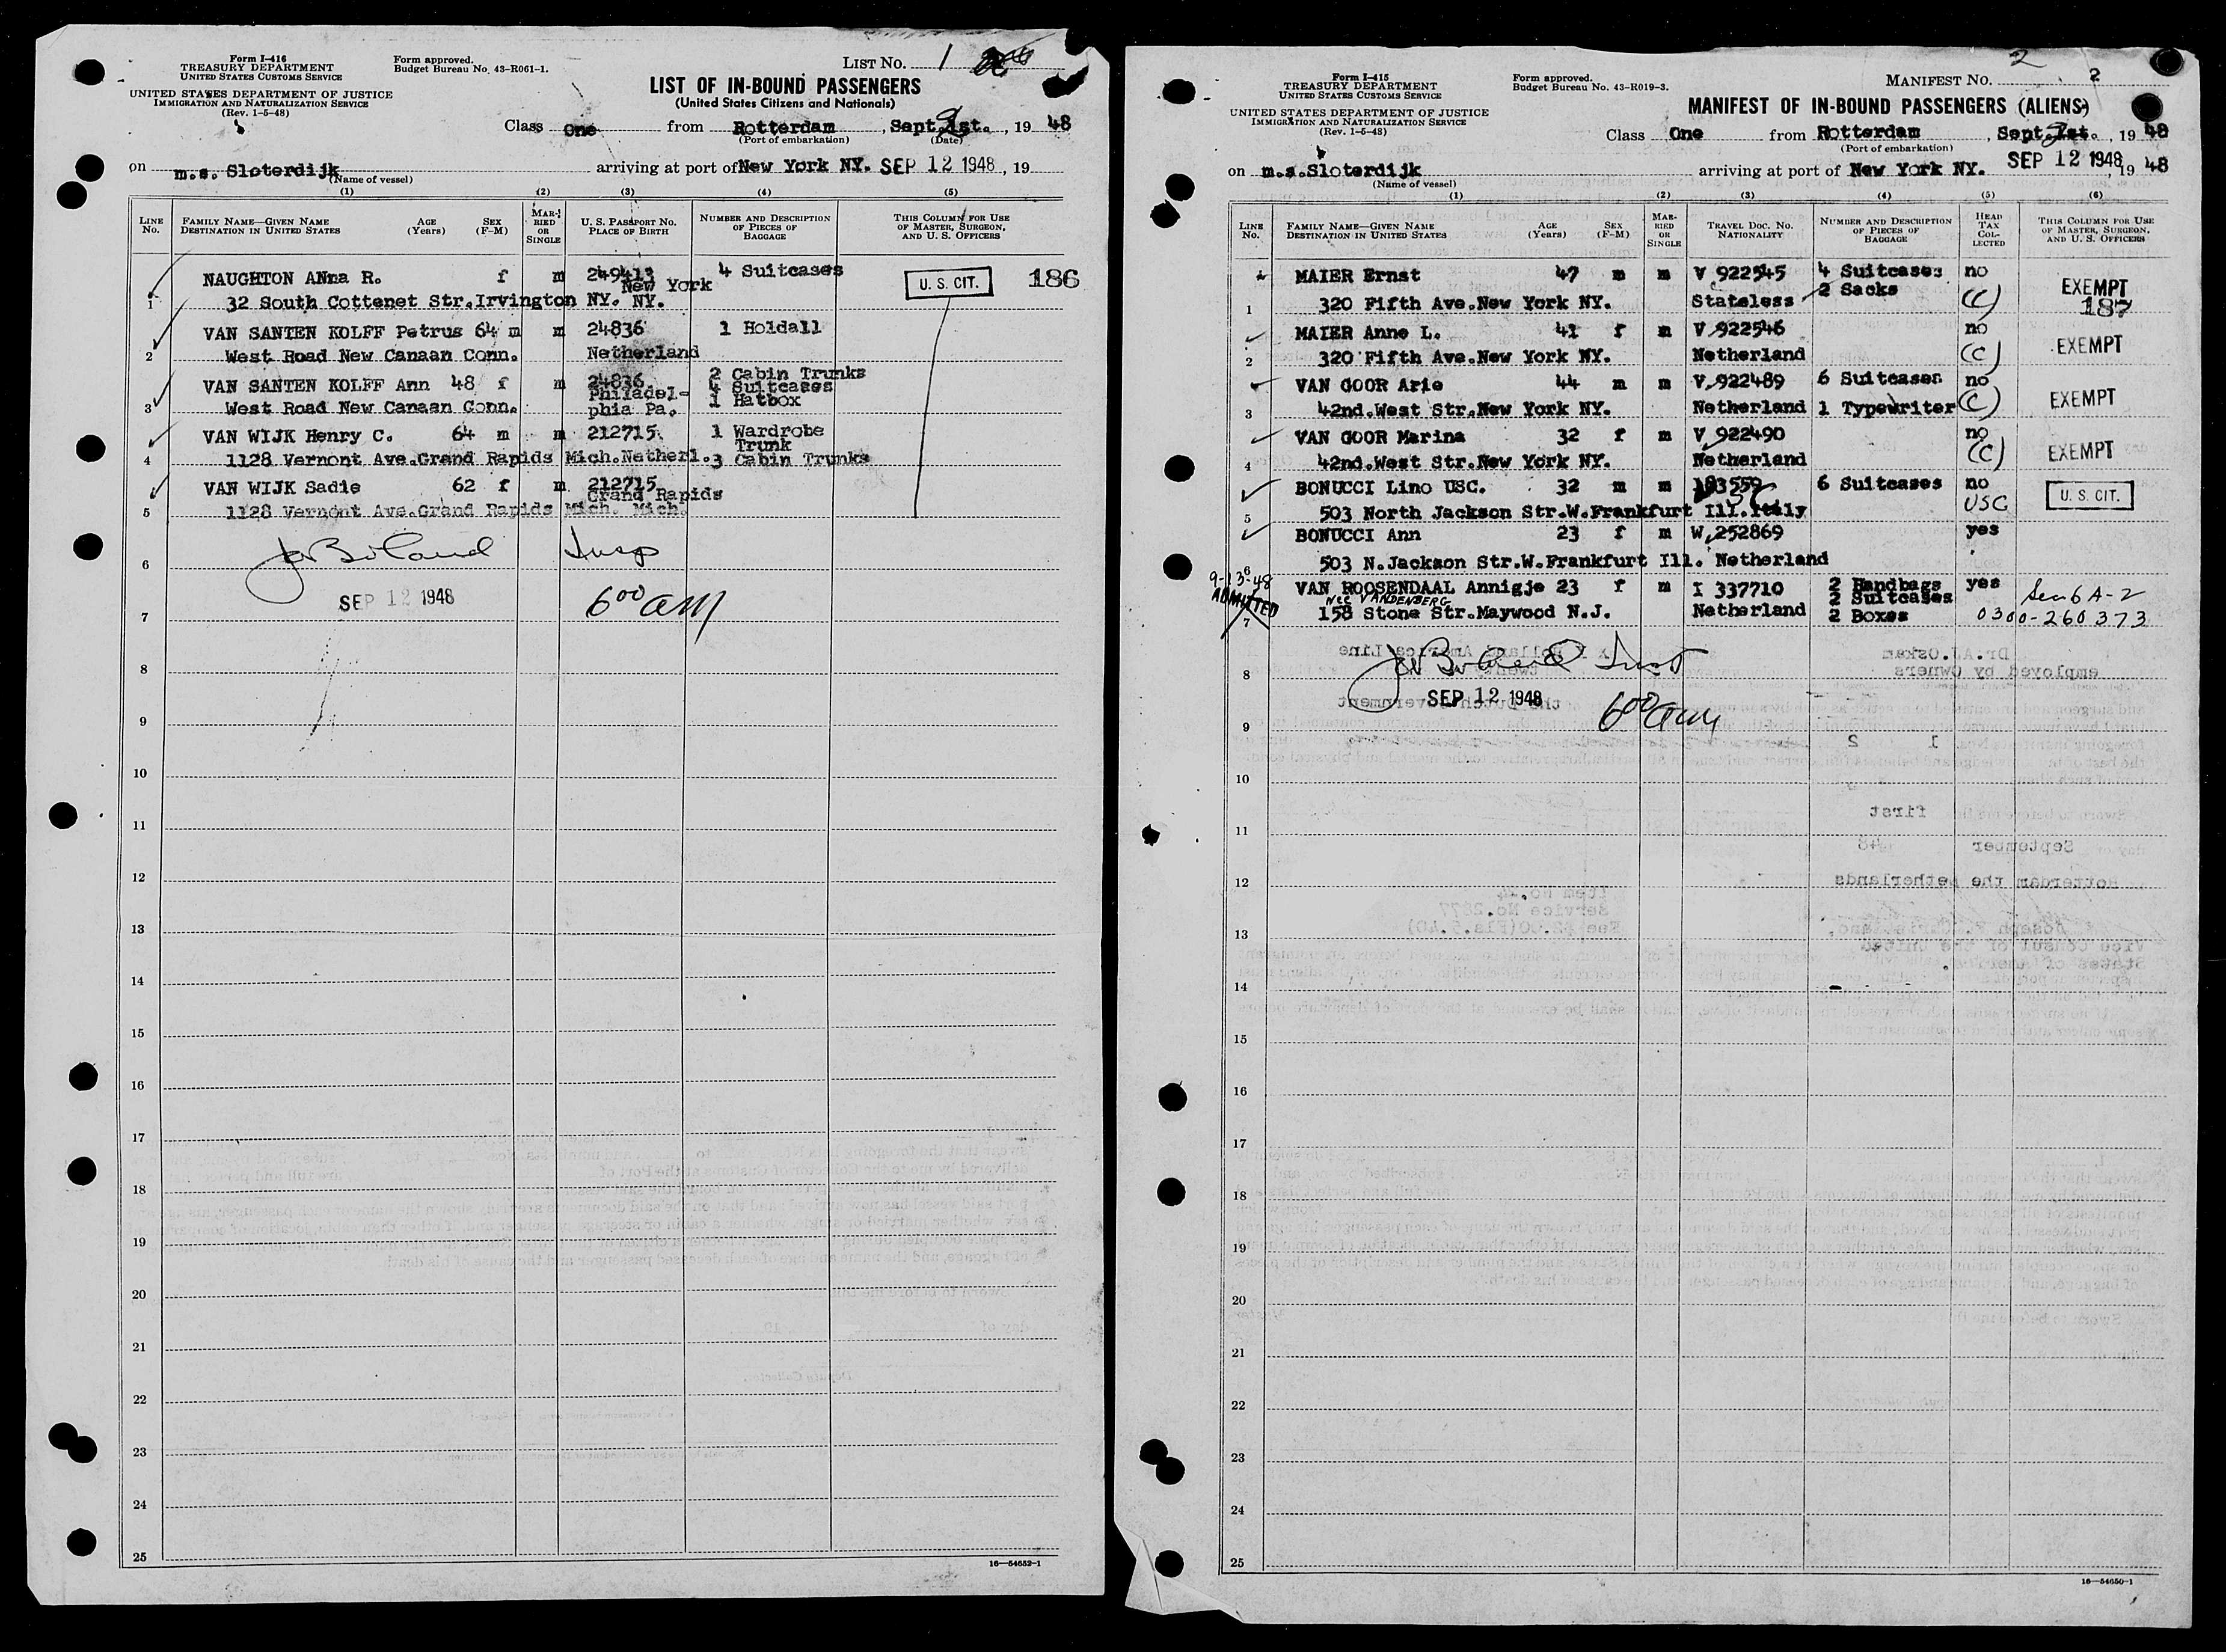 Form I-416
TREASURY DEPARTMENT
UNITED STATES CUSTOMS SERVICE
UNITED STATES DEPARTMENT OF JUSTICE
IMMIGRATION AND NATURALIZATION SERVICE
(Rev. 1-5-48)
Form approved.
Budget Bureau No. 43-R061-1.
LIST No. 1
LIST OF IN-BOUND PASSENGERS
(United States Citizens and Nationals)
Class One from Rotterdam, Sept. 1st., 19 48
(Port of embarkation) (Date)
on m.s. Sloterdijk arriving at port of New York NY. SEP 12 1948, 19
(Name of vessel)
(1) (2) (3) (4) (5)
LINE No. FAMILY NAME—GIVEN NAME DESTINATION IN UNITED STATES AGE (Years) SEX (F-M) MARRIED OR SINGLE U. S. PASSPORT NO. PLACE OF BIRTH NUMBER AND DESCRIPTION OF PIECES OF BAGGAGE THIS COLUMN FOR USE OF MASTER, SURGEON, AND U. S. OFFICERS
NAUGHTON ANna R. f m 249413 New York 4 Suitcases U. S. CIT. 186
1 32 South Cottenet Str.Irvington NY. NY.
VAN SANTEN KOLFF Petrus 64 m m 24836 1 Holdall
2 West Road New Canaan Conn. Netherland
VAN SANTEN KOLFF Ann 48 f m 24836 2 Cabin Trunks
Philadel- 4 Suitcases
3 West Road New Canaan Conn. phia Pa. 1 Hatbox
VAN WIJK Henry C. 64 m m 212715 1 Wardrobe
Trunk
4 1128 Vernont Ave.Grand Rapids Mich.Netherl. 3 Cabin Trunks
VAN WIJK Sadie 62 f m 212715
Grand Rapids
5 1128 Vernont Ave.Grand Rapids Mich. Mich.
Insp
6
SEP 12 1948 6 00 am
7
8
9
10
11
12
13
14
15
16
17
18
19
20
21
22
23
24
25
16—54652-1
Form I-415
TREASURY DEPARTMENT
UNITED STATES CUSTOMS SERVICE
UNITED STATES DEPARTMENT OF JUSTICE
IMMIGRATION AND NATURALIZATION SERVICE
(Rev. 1-5-48)
Form approved.
Budget Bureau No. 43-R019-3.
2
MANIFEST No. 2
MANIFEST OF IN-BOUND PASSENGERS (ALIENS)
Class One from Rotterdam, Sept. 1st., 19 48
(Port of embarkation)
on m.s.Sloterdijk arriving at port of New York NY. SEP 12 1948, 19 48
(Name of vessel)
(1) (2) (3) (4) (5) (6)
LINE No. FAMILY NAME—GIVEN NAME DESTINATION IN UNITED STATES AGE (Years) SEX (F-M) MARRIED OR SINGLE TRAVEL DOC. NO. NATIONALITY NUMBER AND DESCRIPTION OF PIECES OF BAGGAGE HEAD TAX COLLECTED THIS COLUMN FOR USE OF MASTER, SURGEON, AND U. S. OFFICERS
MAIER Ernst 47 m m V 922545 4 Suitcases no EXEMPT
1 320 Fifth Ave.New York NY. Stateless 2 Sacks (C) 187
MAIER Anne L. 41 f m V 922546 no EXEMPT
2 320 Fifth Ave.New York NY. Netherland (C)
VAN GOOR Arie 44 m m V 922489 6 Suitcases no EXEMPT
3 42nd.West Str.New York NY. Netherland 1 Typewriter (C)
VAN GOOR Marina 32 f m V 922490 no EXEMPT
4 42nd.West Str.New York NY. Netherland (C)
BONUCCI Lino USC. 32 m m 103559 6 Suitcases no U. S. CIT.
5 503 North Jackson Str.W.Frankfurt Ill.Italy USC
BONUCCI Ann 23 f m W 252869 yes
6 503 N.Jackson Str.W.Frankfurt Ill. Netherland
9-13-48
ADMITTED
VAN ROOSENDAAL Annigje 23 f m I 337710 2 Handbags yes Sec 6 A-2
Nee VANDENBERG 2 Suitcases
7 158 Stone Str.Maywood N.J. Netherland 2 Boxes 0300-260373
8
SEP 12 1948 6 00 am
9
10
11
12
13
14
15
16
17
18
19
20
21
22
23
24
25
16—54650-1